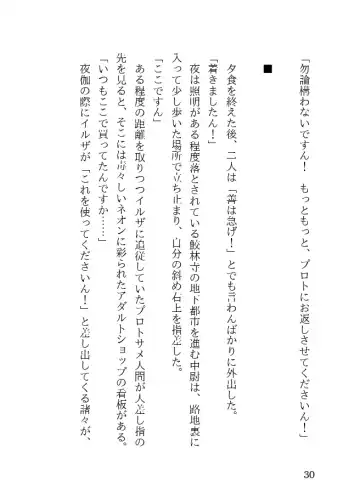 「勿論構わないですん！　もっともっと、プロトにお返しさせてくださいん！」
■
夕食を終えた後、二人は「善は急げ！」とでも言わんばかりに外出した。
「着きましたん！」
夜は照明がある程度落とされている鮫林寺の地下都市を進む中尉は、路地裏に
入って少し歩いた場所で立ち止まり、自分の斜め右上を指差した。
「ここですん」
ある程度の距離を取りつつイルザに追従していたプロトサメ人間が人差し指の
先を見ると、そこには毒々しいネオンに彩られたアダルトショップの看板がある。
「いつもここで買ってたんですか……」
夜伽の際にイルザが「これを使ってくださいん！」と差し出してくる諸々が、
30